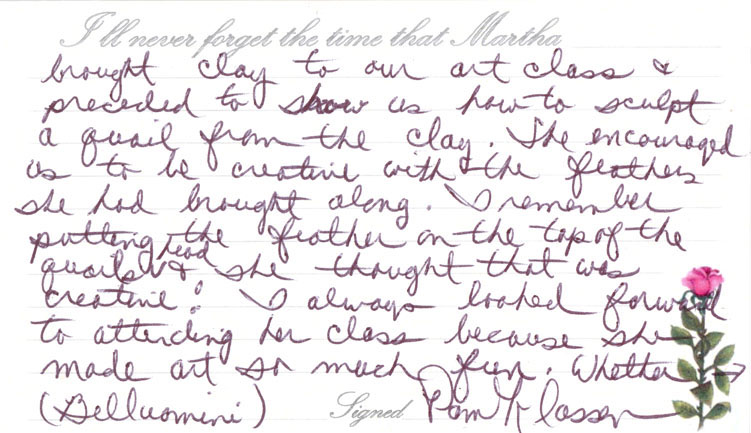 I'll never forget the time that Martha
brought clay to our art class &
preceded to show us how to sculpt
a quail from the clay. She encouraged
us to be creative with the feathers
she had brought along. I remember
putting the feather on the top of the
quails head & she thought that was
creative! I always looked forward
to attending her class because she
made art so much fun. Whether →
(Belluomini) Signed Pam Klassen